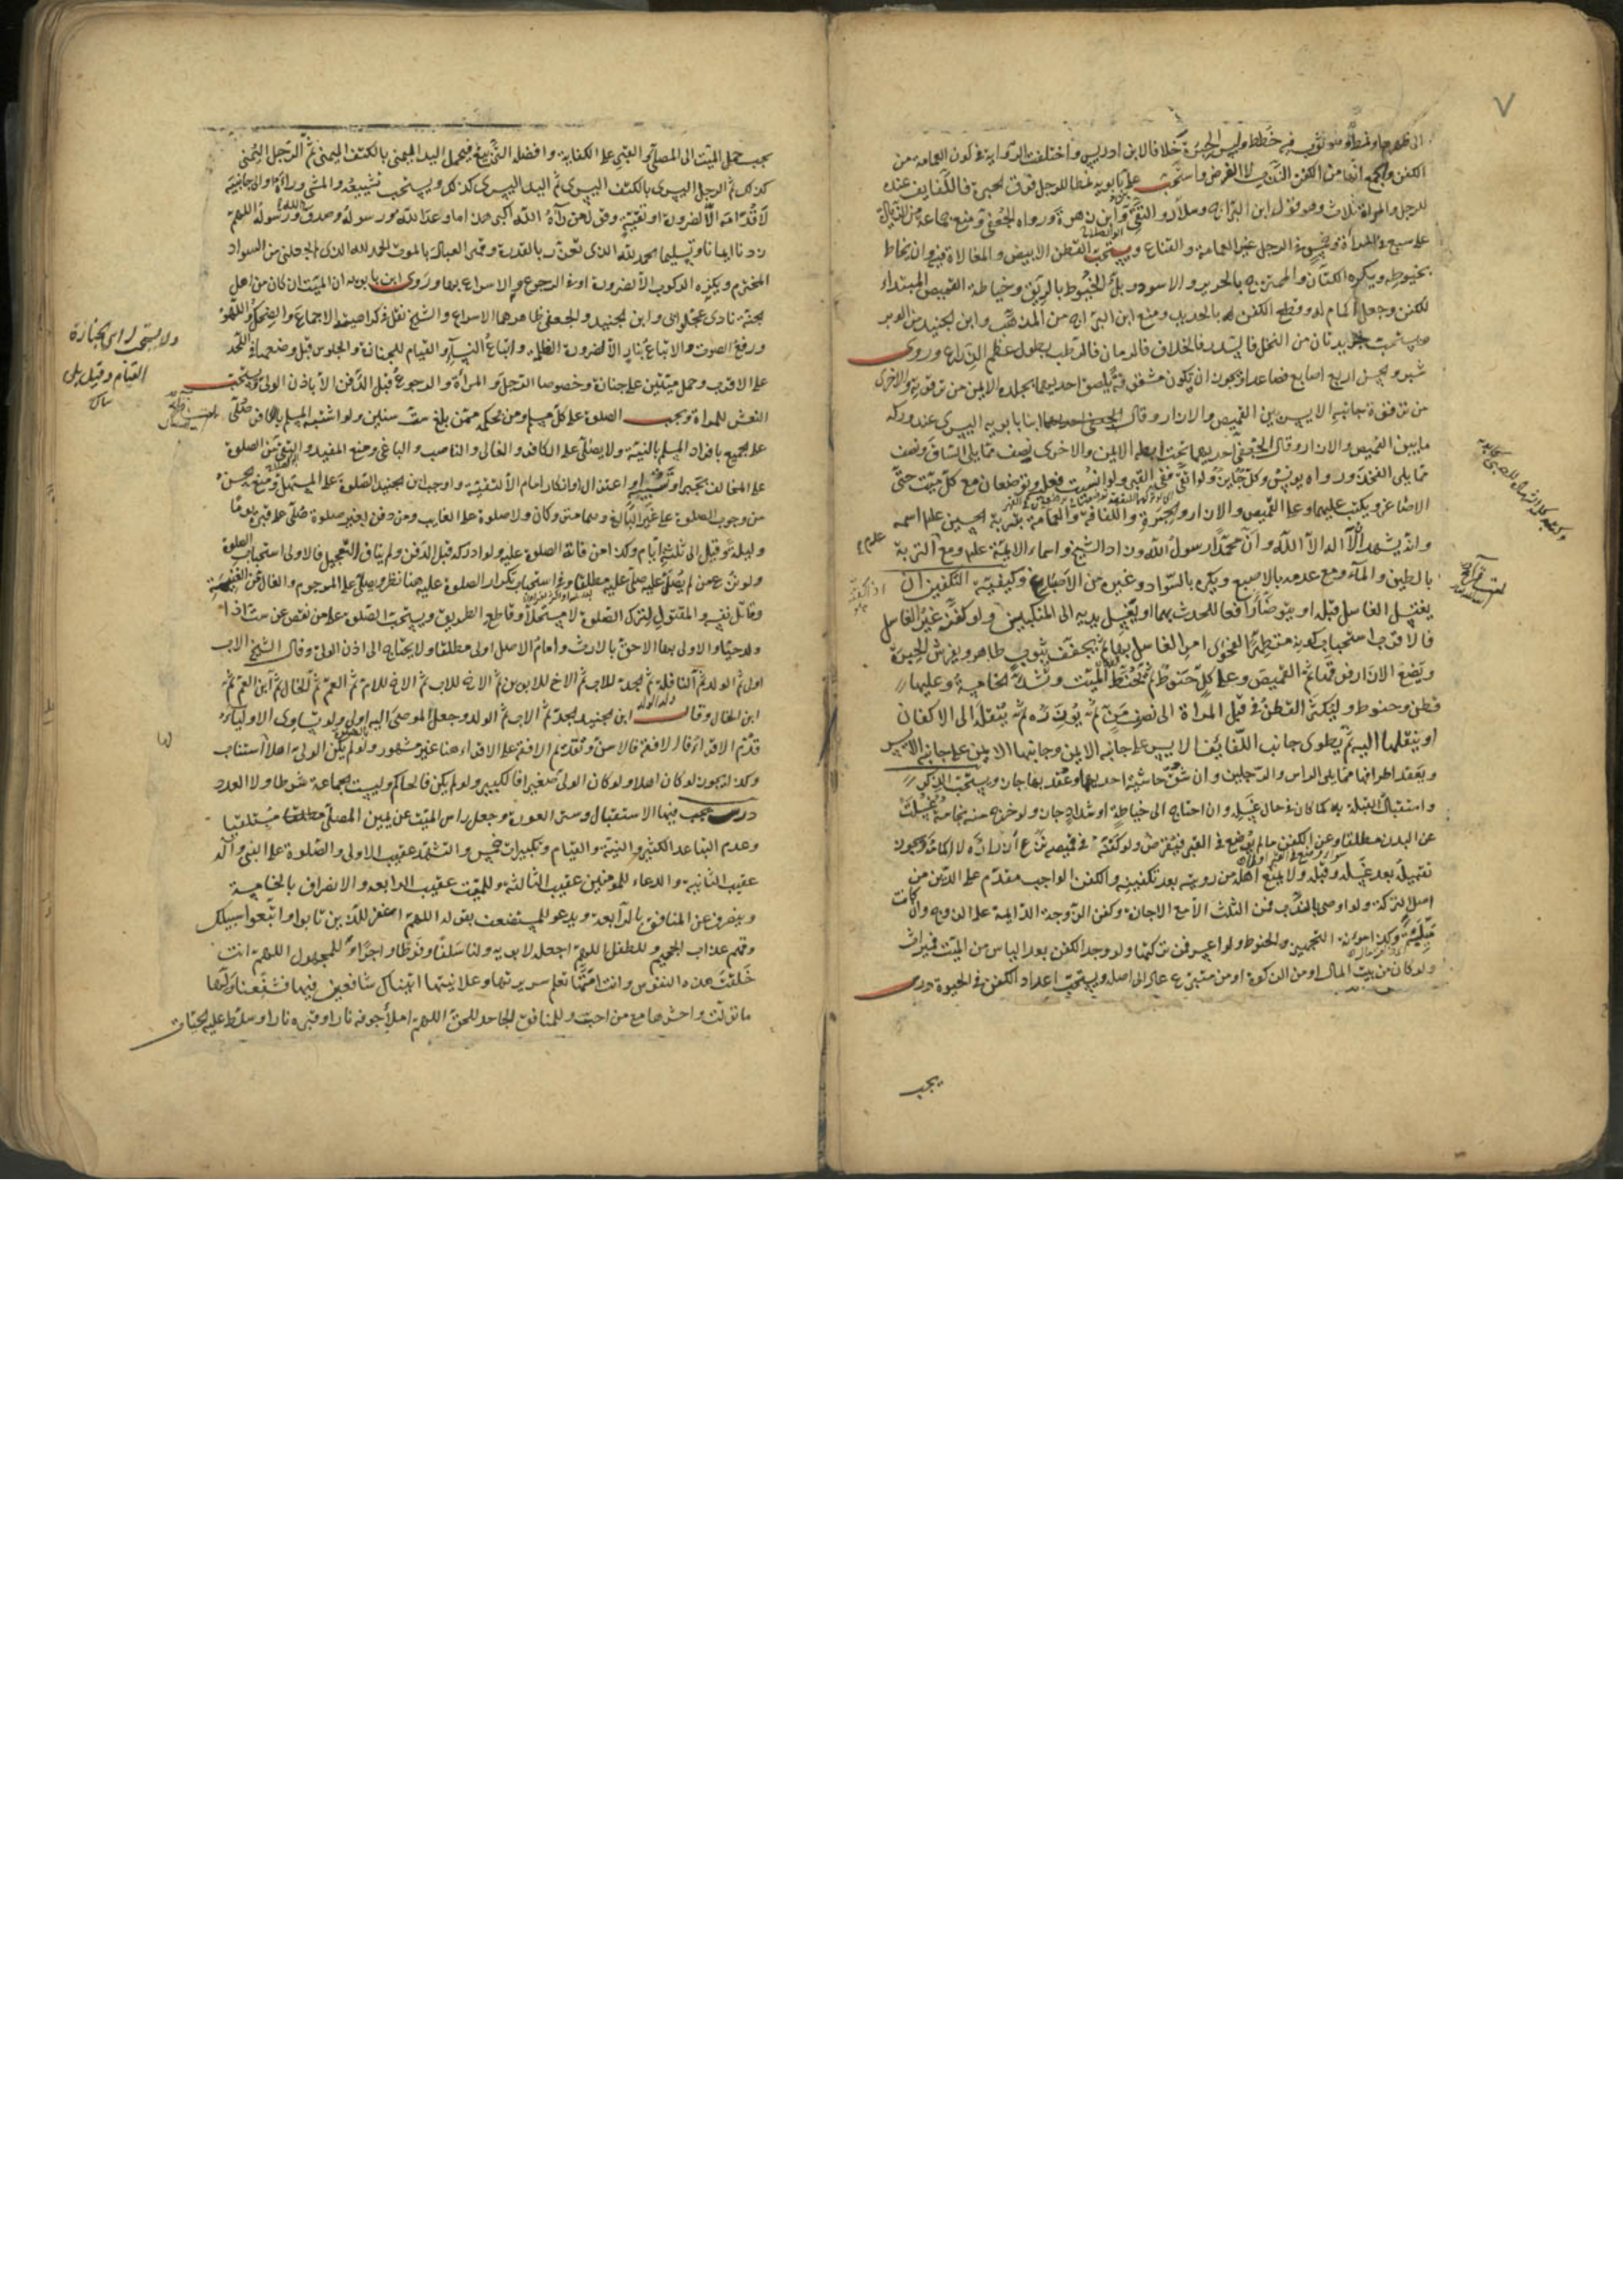 ٧
الكفن والجمع انها من الكفن الندب لا الفرض واستحب على بن بابويه نمطا للرجل فوق الحبرة فاللفايف عنده
للرجل والمراة ثلاث وهو قول ابن البراج وسلار والتقى وابن زهرة ورواه الجعفى ومنع جماعة من الزيادة
على سبع فى المراة وخمس فى الرجل غير العمامة والقناع ويستحب القطن الابيض والمغالاة فيه وان يخاط
بخيوطه ويكره الكتان والممتزج بالحرير والاسود وبل الخيوط بالريق وخياطة القميص المبتداء
للكفن وجعل اكمام له وقطع الكفن بالحديد ومنع ابن البراج من المذهب وابن الجنيد من الوبر
ويستحب جريدتان من النخل فالسدر فالخلاف فالرمان فالرطب بطول عظم الذراع وروى
شبر ويجزى اربع اصابع فصاعدا ويجوز ان يكون مشقوقة يلصق احديهما بجلده الايمن من ترقوته والاخرى
من ترقوة جانبه الايسر بين القميص والازار وقال ابنا بابويه اليسرى عند وركه
ما بين القميص والازار وقال الجعفى احديهما تحت ابطه الايمن والاخرى نصف مما يلى الساق ونصف
مما يلى الفخذ ورواه يونس وكل جايز ولو اتقى ففى القبر ولو انسيت فعل وتوضعان مع كل ميت حتى
الاصاغر ويكتب عليهما وعلى القميص والازار والحبرة واللفافة والعمامة بتربة الحسين عليه اسمه
وانه يشهد ان لا اله الا الله وان محمدا رسول الله وزاد الشيخ واسماء الايمة عليهم ومع التربة
بالطين والماء ومع عدمه بالاصبع ويكره بالسواد وغيره من الاصباغ وكيفية التكفين ان
يغتسل الغاسل قبله او يتوضأ رافعا للحدث بهما او يغسل يديه الى المنكبين ولو كفنه غير الغاسل
فالاقرب استحباب كونه متطهرا لفحوى امر الغاسل بها ثم يجفف بثوب طاهر ويفرش الحبرة
ويضع الازار فوقها ثم القميص وعلى كل حنوط ثم يحنط الميت وتشد الخامسة وعليها
قطن وحنوط وليكثر القطن فى قبل المراة الى نصف من ثم يؤزره ثم ينقله الى الاكفان
او ينقلها اليه ثم يطوى جانب اللفايف الايسر على جانبه الايمن وجانبها الايمن على جانبه الايسر
ويعقد اطرافها مما يلى الراس والرجلين وان شق حاشية احديهما وعقد بها جاز ويستحب الذكر
واستقبال القبلة به كما كان فى حال غسله وان احتاج الى خياطة او شداد جاز ولو خرج منه نجاسة غسلت
عن البدن مطلقا وعن الكفن ما لم يوضع فى القبر فيقرض ولو كفنه فى قميصه نزع ازراره لا اكمامه ويجوز
تقبيله بعد غسله وقبله ولا يمنع اهله من رويته بعد تكفينه والكفن الواجب مقدم على الدين من
اصل التركة ولو اوصى بالندب فمن الثلث الا مع الاجازة وكفن الزوجة الدايمة على الزوج وان كانت
ملية وكذا مؤنة التجهيز والحنوط ولو اعسر فمن تركتها ولو وجد الكفن بعد الياس من الميت فميراث
ولو كان من بيت المال او من الزكوة او من متبرع عاد الى اصله ويستحب اعداد الكفن فى الحيوة درس
يجب
يجب حمل الميت الى المصلى والقبر على الكفاية وافضله التربيع فيحمل اليد اليمنى بالكتف اليمنى ثم الرجل اليمنى
كذلك ثم الرجل اليسرى بالكتف اليسرى ثم اليد اليسرى كذلك ويستحب تشييعه والمشى وراءه او الى جانبيه
لا قدامه الا لضرورة او تقية وقول من رآه الله اكبر هذا ما وعدنا الله ورسوله وصدق الله ورسوله اللهم
زدنا ايمانا وتسليما الحمد لله الذى تعزز بالقدرة وقهر العباد بالموت الحمد لله الذى لم يجعلنى من السواد
المخترم ويكره الركوب الا لضرورة او فى الرجوع والاسراع بها وروى ابن بابويه ان الميت ان كان من اهل
الجنة نادى عجلوا بى وابن الجنيد والجعفى ظاهرهما الاسراع والشيخ نقل فى كراهيته الاجماع والضحك واللهو
ورفع الصوت والاتباع بنار الا لضرورة الظلمة واتباع النساء والقيام للجنازة والجلوس قبل وضعها فى اللحد
على الاقرب وحمل ميتين على جنازة وخصوصا الرجل والمراة والرجوع قبل الدفن الا باذن الولى ويستحب
النعش للمراة ويجب الصلوة على كل مسلم ومن بحكمه ممن بلغ ست سنين ولو اشتبه المسلم بالكافر صلى
على الجميع بافراد المسلم بالنية ولا يصلى على الكافر والغالى والناصب والباغى ومنع المفيد والتقى من الصلوة
على المخالف بجبر او تشبيه او اعتزال او انكار امام الا لتقية واوجب ابن الجنيد الصلوة على المستهل ومنع الحسن
من وجوب الصلوة على غير البالغ وهما متروكان ولا صلوة على الغايب ومن دفن بغير صلوة صلى على قبره يوما
وليلة وقيل الى ثلثة ايام وكذا من فاتته الصلوة عليه ولو ادركه قبل الدفن ولم يناف التعجيل فالاولى استحباب الصلوة
وقاتل نفسه والمقتول لترك الصلوة لا مستحلا وقاطع الطريق ويستحب الصلوة على من نقص عن ست اذا
ولد حيا والاولى بها الاحق بالارث وامام الاصل اولى مطلقا ولا يحتاج الى اذن الولى وقال الشيخ الاب
اولى ثم الولد ثم النافلة ثم الجد للاب ثم الاخ للابوين ثم الاخ للاب ثم الاخ للام ثم العم ثم الخال ثم ابن العم ثم
ابن الخال وقال ابن الجنيد الجد ثم الاب ثم الولد وجعل الموصى اليه اولى ولو تساوى الاولياء
قدم الاقراء فالافقه فالاسن وتقديم الافقه على الاقراء هنا غير مشهور ولو لم يكن الولى اهلا استناب
وكذا يجوز لو كان اهلا ولو كان الولى صغيرا فالكبير ولو لم يكن فالحاكم وليست الجماعة شرطا ولا العدد
درس يجب فيها الاستقبال وستر العورة وجعل راس الميت عن يمين المصلى مستلقيا
وعدم التباعد الكثير والنية والقيام وتكبيرات خمس والتشهد عقيب الاولى والصلوة على النبى وآله
عقيب الثانية والدعاء للمؤمنين عقيب الثالثة وللميت عقيب الرابعة والانصراف بالخامسة
وينصرف عن المنافق بالرابعة ويدعو للمستضعف بقوله اللهم اغفر للذين تابوا واتبعوا سبيلك
وقهم عذاب الجحيم وللطفل اللهم اجعله لابويه ولنا سلفا وفرطا واجرا وللمجهول اللهم انت
خلقت هذه النفوس وانت امتها تعلم سريرتها وعلانيتها اتيناك شافعين فيها فشفعنا ولها
ما تولت واحشرها مع من احبت وللمنافق الجاحد للحق اللهم املأ جوفه نارا وقبره نارا وسلط عليه الحيات